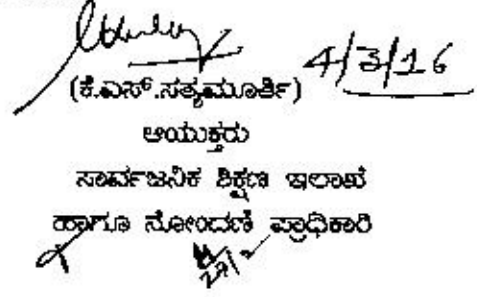 4/3/16
(ಕೆ.ಎಸ್.ಸತ್ಯಮೂರ್ತಿ)
ಆಯುಕ್ತರು
ಸಾರ್ವಜನಿಕ ಶಿಕ್ಷಣ ಇಲಾಖೆ
ಹಾಗೂ ನೋಂದಣಿ ಪ್ರಾಧಿಕಾರಿ